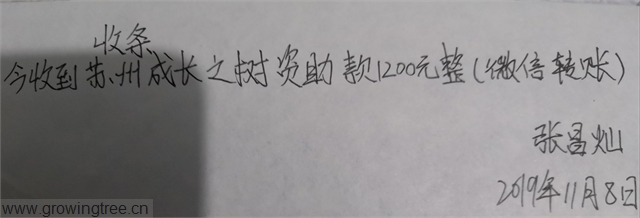 收条
今收到苏州成长之树资助款1200元整(微信转账)
张昌灿
2019年11月8日
www.growingtree.cn